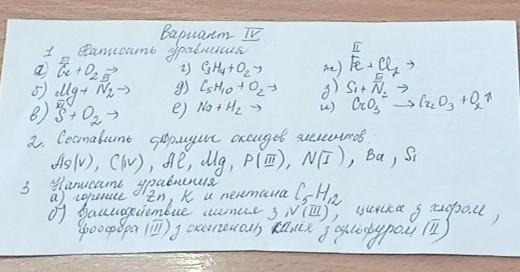 Вариант IV
1. Написать уравнения
а) Cr(III) + O2 → г) C3H4 + O2 → ж) Fe(II) + Cl2 →
б) Mg + N2(III) → д) C5H10 + O2 → з) Si + N2(III) →
в) S(VI) + O2 → е) Na + H2 → и) CrO3 → Cr2O3 + O2↑
2. Составить формулы оксидов элементов
As(V), C(IV), Al, Mg, P(III), N(I), Ba, Si
3 Написать уравнения
а) горение Zn, K и пентана C5H12
б) Взаимодействие лития з N(III), цинка з хлором,
фосфора (III) з оксигеном, з сульфуром (II)